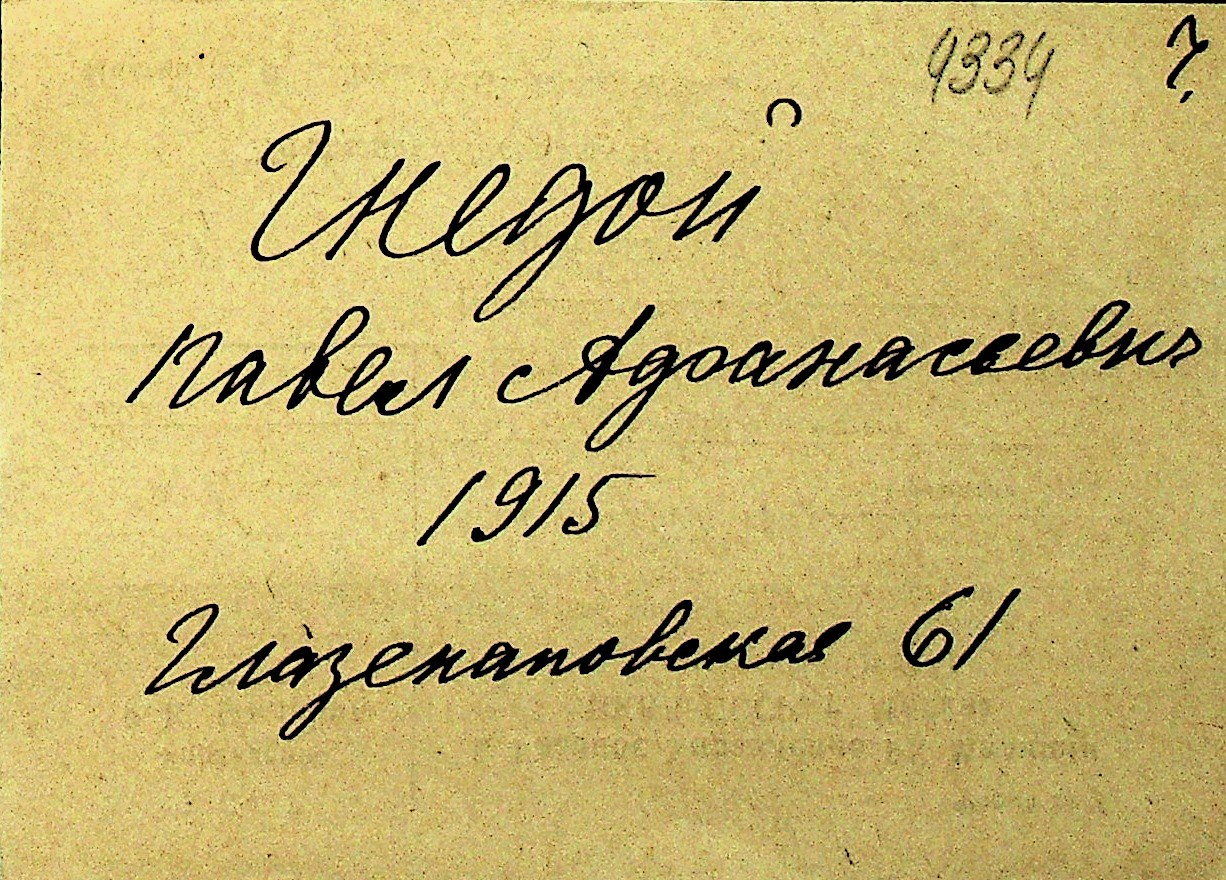 4334 ?
Гнедой
Павел Афанасьевич
1915
Глазенаповская 61